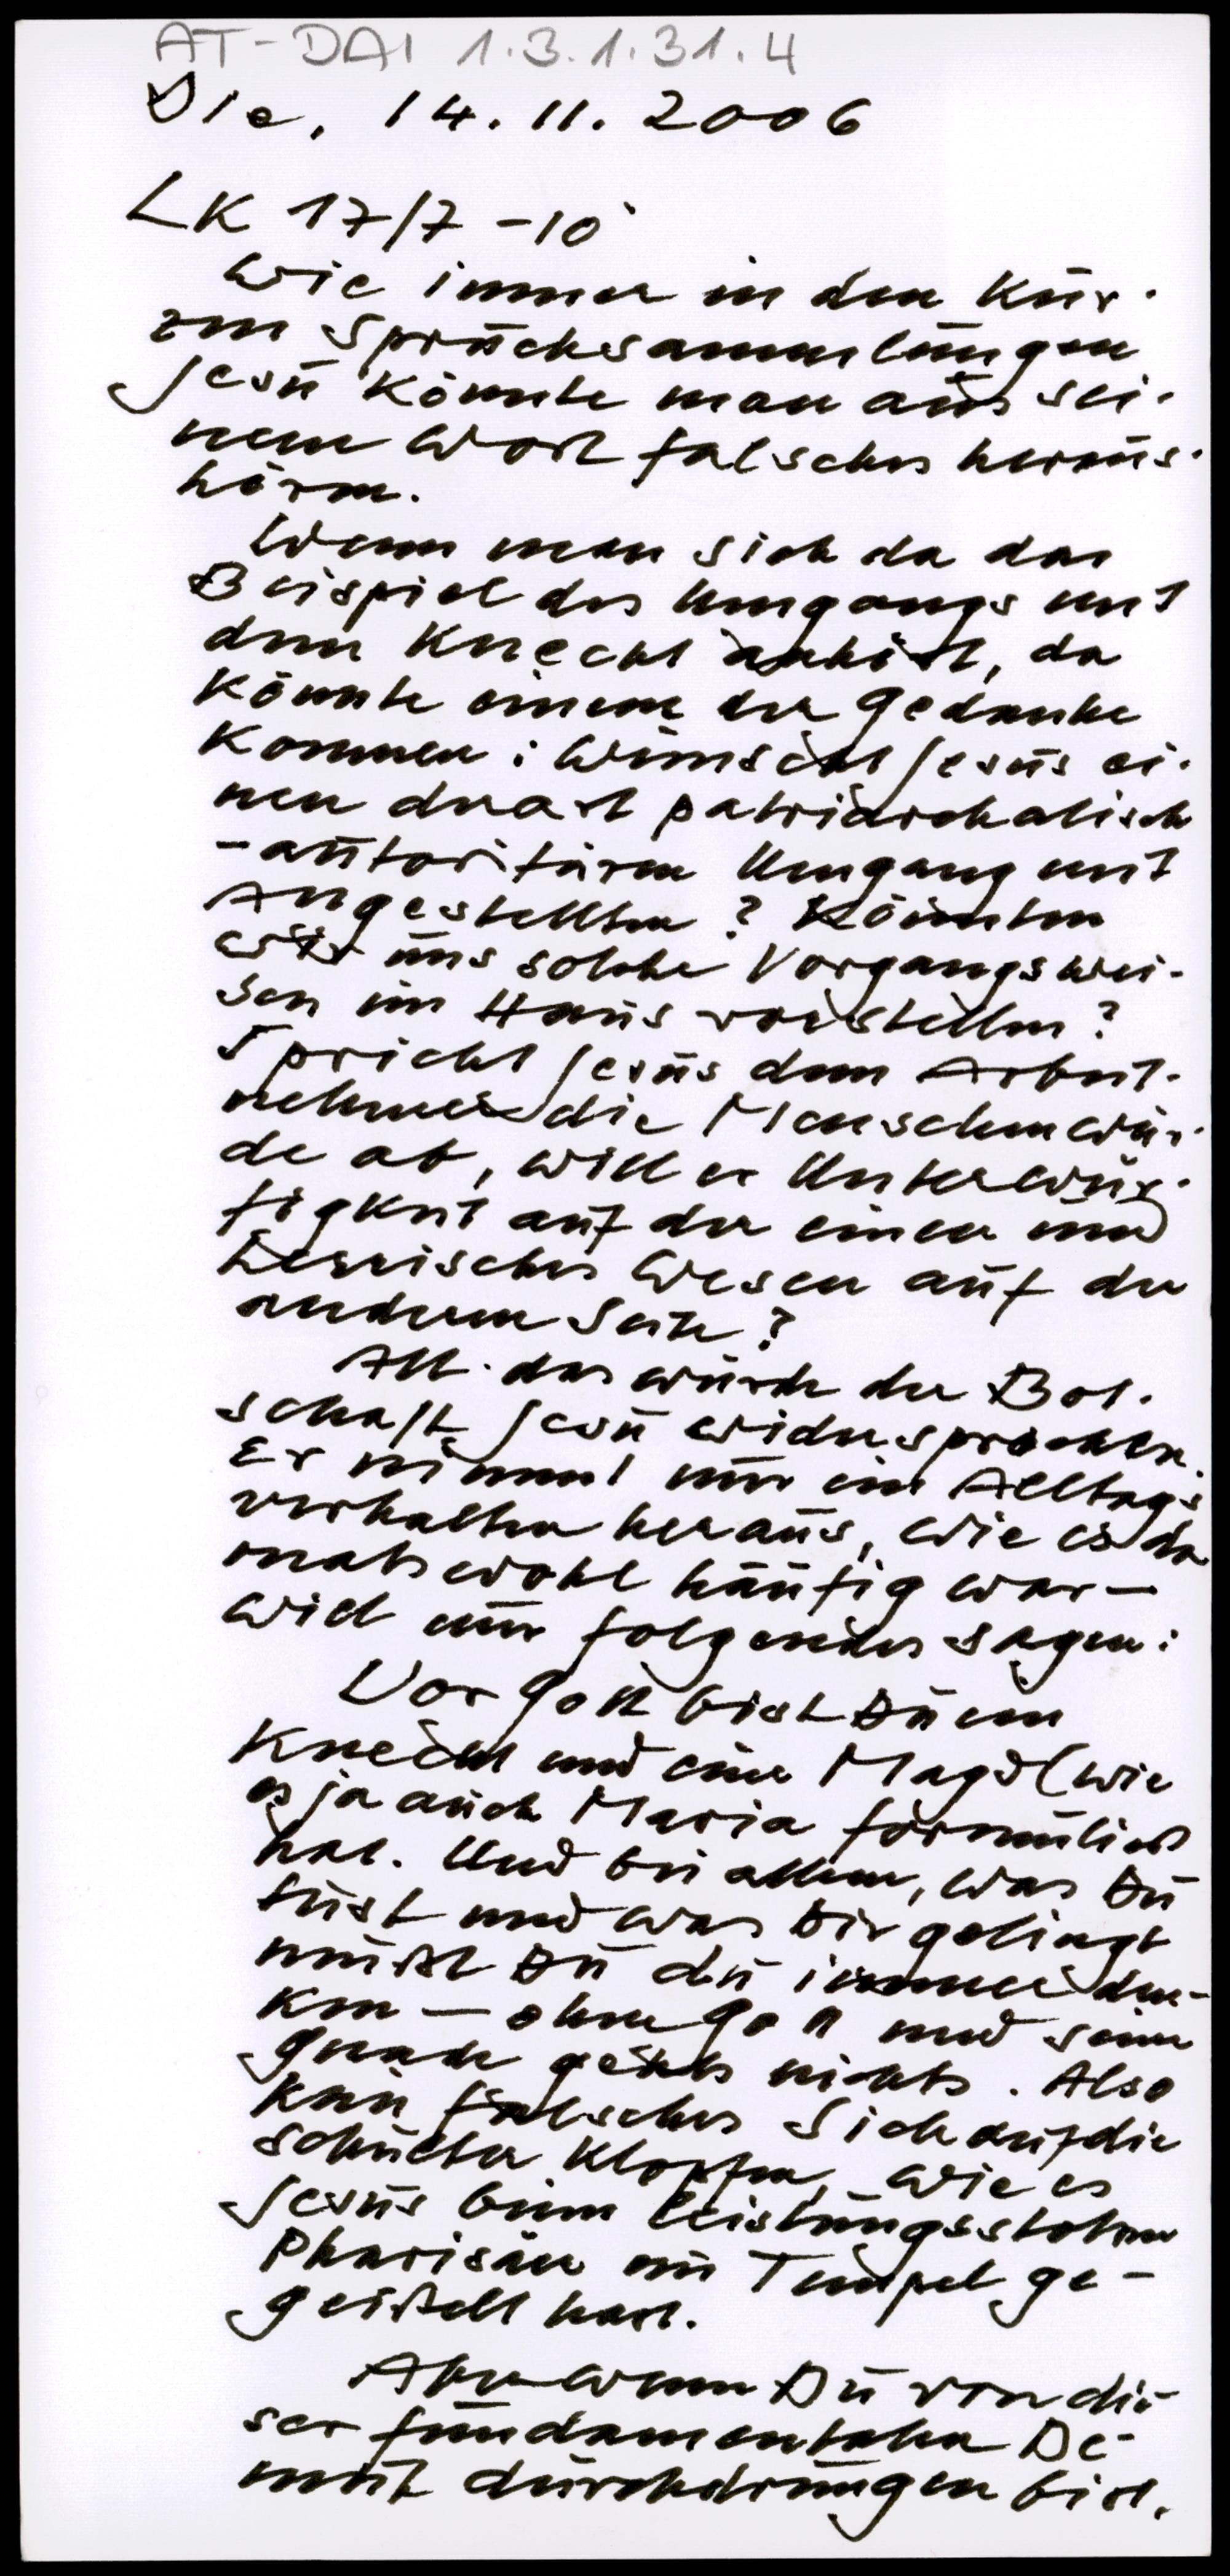 AT-DAI 1.3.1.31.4
Die, 14.11.2006
LK 17/7-10
Wie immer in den kur-
zen Spruchsammlungen
Jesu könnte man aus sei-
nem Wort falsches heraus-
hören.
Wenn man sich da das
Beispiel des Umgangs mit
dem Knecht anhört, da
könnte einem der Gedanke
kommen: Wünscht Jesus ei-
nen derart patriarchalisch
-autoritären Umgang mit
Angestellten? Könnten
wir uns solche Vorgangswei-
sen im Haus vorstellen?
Spricht Jesus dem Arbeit-
nehmer die Menschenwür-
de ab, will er Unterwür-
figkeit auf der einen und
herrisches Wesen auf der
anderen Seite?
All das würde der Bot-
schaft Jesu widersprechen.
Er nimmt nur ein Alltags
verhalten heraus, wie es da
mals wohl häufig war -
will nur folgendes sagen:
Vor Gott bist Du ein
Knecht und eine Magd (wie
es ja auch Maria formuliert
hat. Und bei allem, was Du
tust und was Dir gelingt
mußt Du dir immer den-
ken - ohne Gott und seine
Gnade geht's nichts. Also
kein falsches Sich auf die
Schulter Klopfen, wie es
Jesus beim leistungsstolzen
Pharisäer im Tempel ge-
geißelt hat.
Aber wenn Du von die-
ser fundamentalen De-
mut durchdrungen bist,